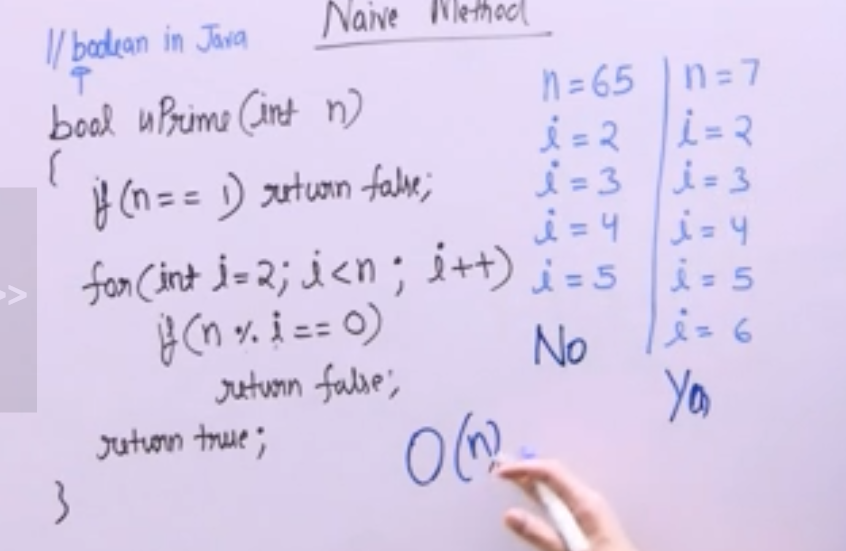 Naive Method
// boolean in Java
bool isPrime(int n)
{
if(n == 1) return false;
for(int i=2; i<n; i++)
if(n % i == 0)
return false;
return true;
}
n=65
i=2
i=3
i=4
i=5
No
n=7
i=2
i=3
i=4
i=5
i=6
Yes
O(n)